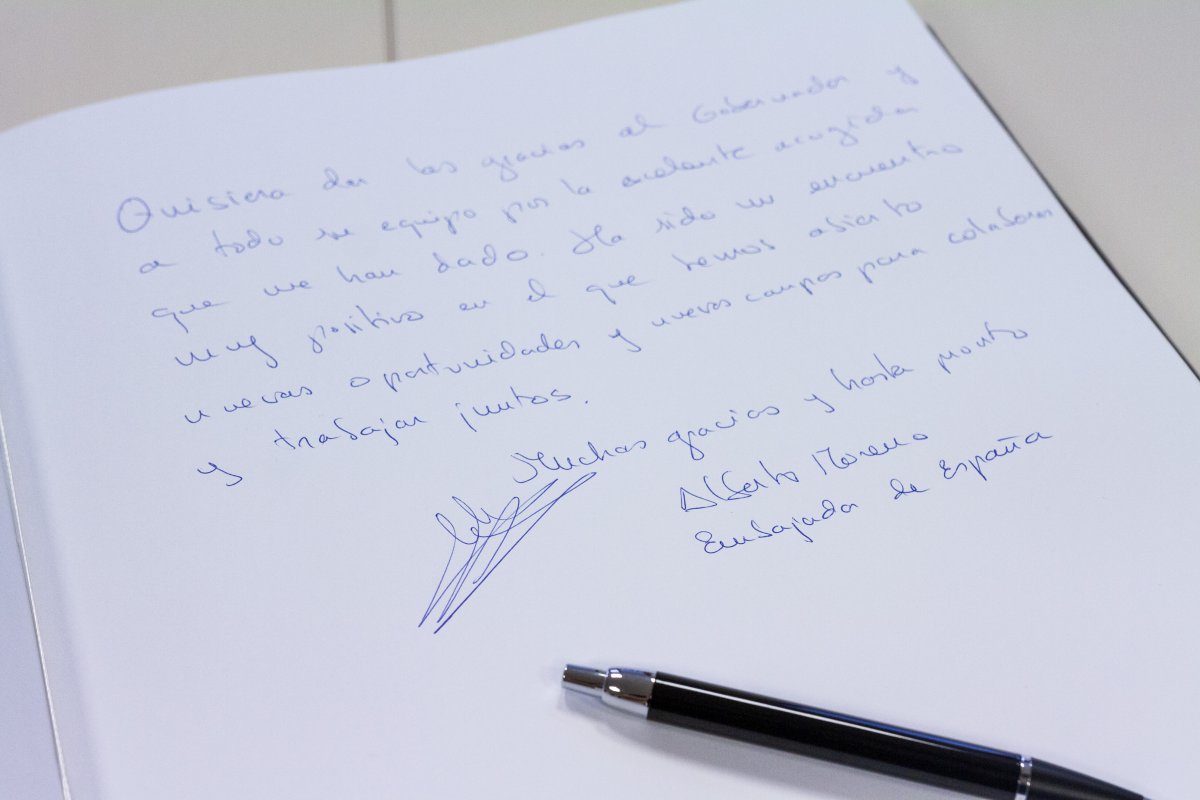 Quisiera dar las gracias al Gobernador y
a todo su equipo por la excelente acogida
que me han dado. Ha sido un encuentro
muy positivo en el que hemos abierto
nuevas oportunidades y nuevos campos para colaborar
y trabajar juntos.
Muchas gracias y hasta pronto
Alberto Moreno
Embajador de España